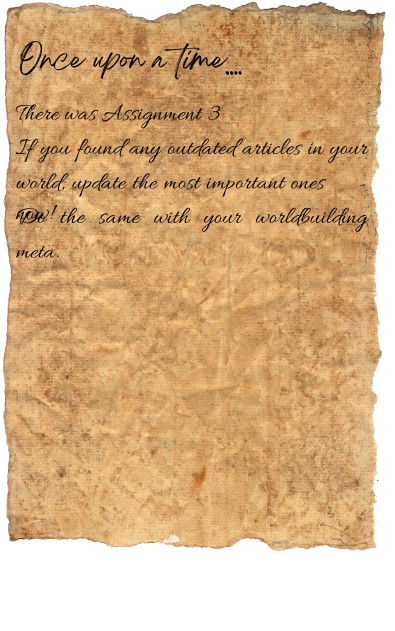 Once upon a time....
There was Assignment 3
If you found any outdated articles in your
world, update the most important ones
now!
Do the same with your worldbuilding
meta.